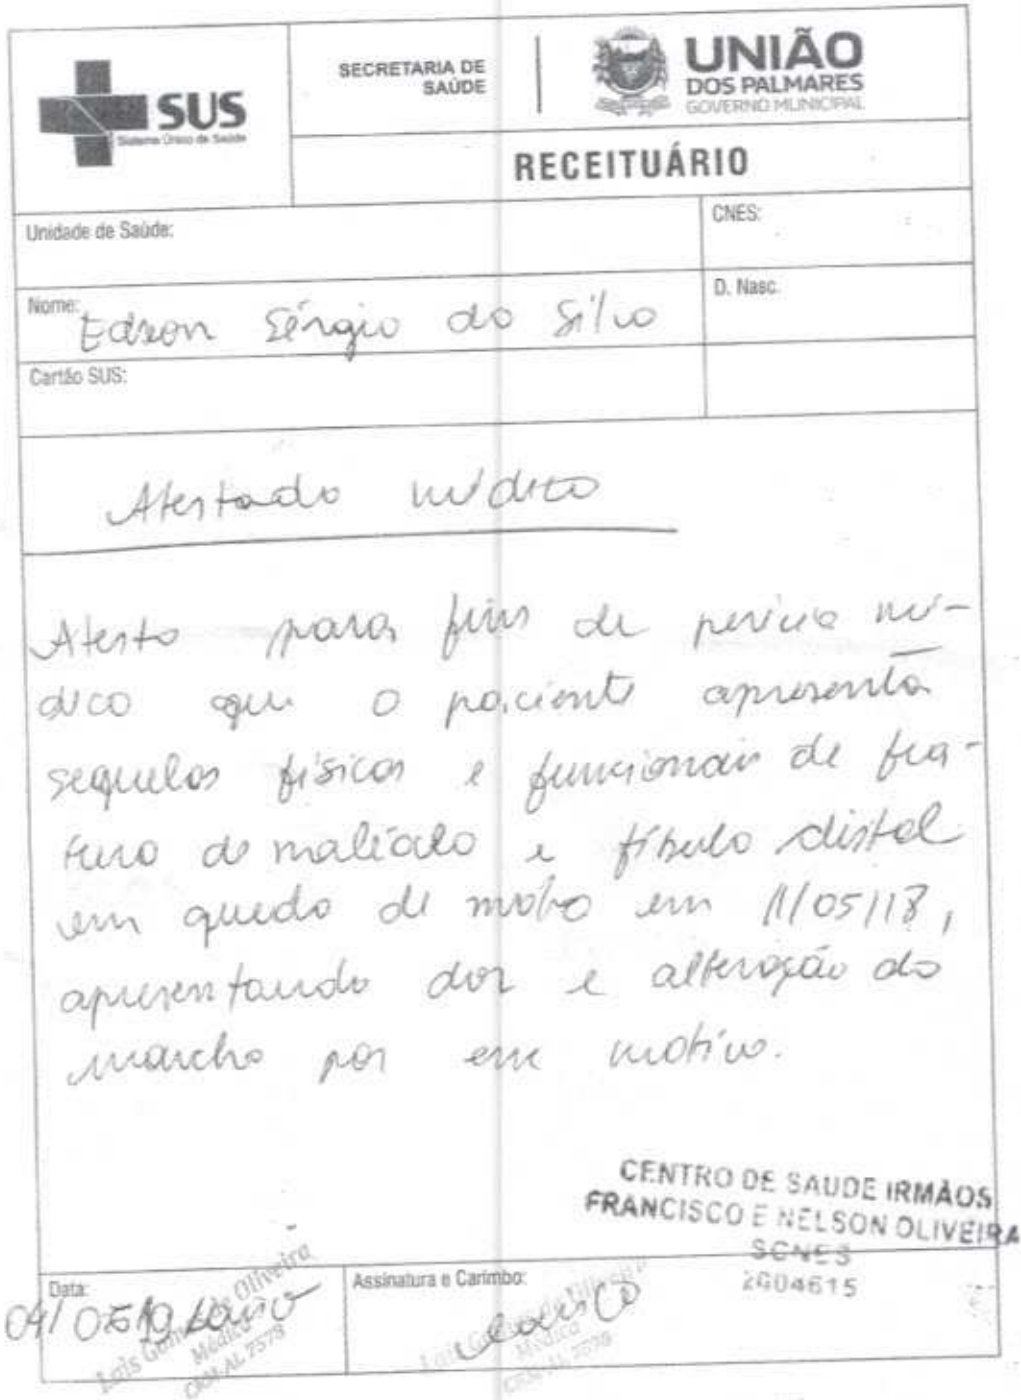 SUS
Sistema Único de Saúde
SECRETARIA DE
SAÚDE
UNIÃO
DOS PALMARES
GOVERNO MUNICIPAL
RECEITUÁRIO
Unidade de Saúde:
CNES:
Nome: Edson Sérgio da Silva
D. Nasc.
Cartão SUS:
Atestado médico
Atesto para fins de perícia mé-
dica que o paciente apresenta
sequelas físicas e funcionais de fra-
tura de maléolo e fíbula distal
em queda de moto em 11/05/18,
apresentando dor e alteração da
marcha por esse motivo.
CENTRO DE SAUDE IRMÃOS
FRANCISCO E NELSON OLIVEIRA
SCNES
2004615
Data:
Oliveira
Médica
CRM-AL 7578
Assinatura e Carimbo:
Médica
CRM-AL 7578